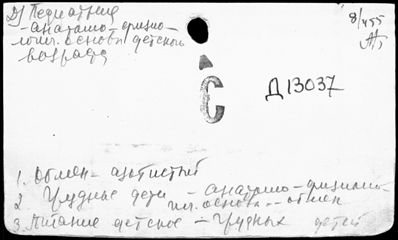 2) Педиатрия
8/455
- анатомо-физио-
логич. основы детского
возраста
С
Д13037
1. Обмен - азотистый
2. Грудные дети - анатомо-физиоло-
гич. основы - обмен
3. Питание детское - грудных детей